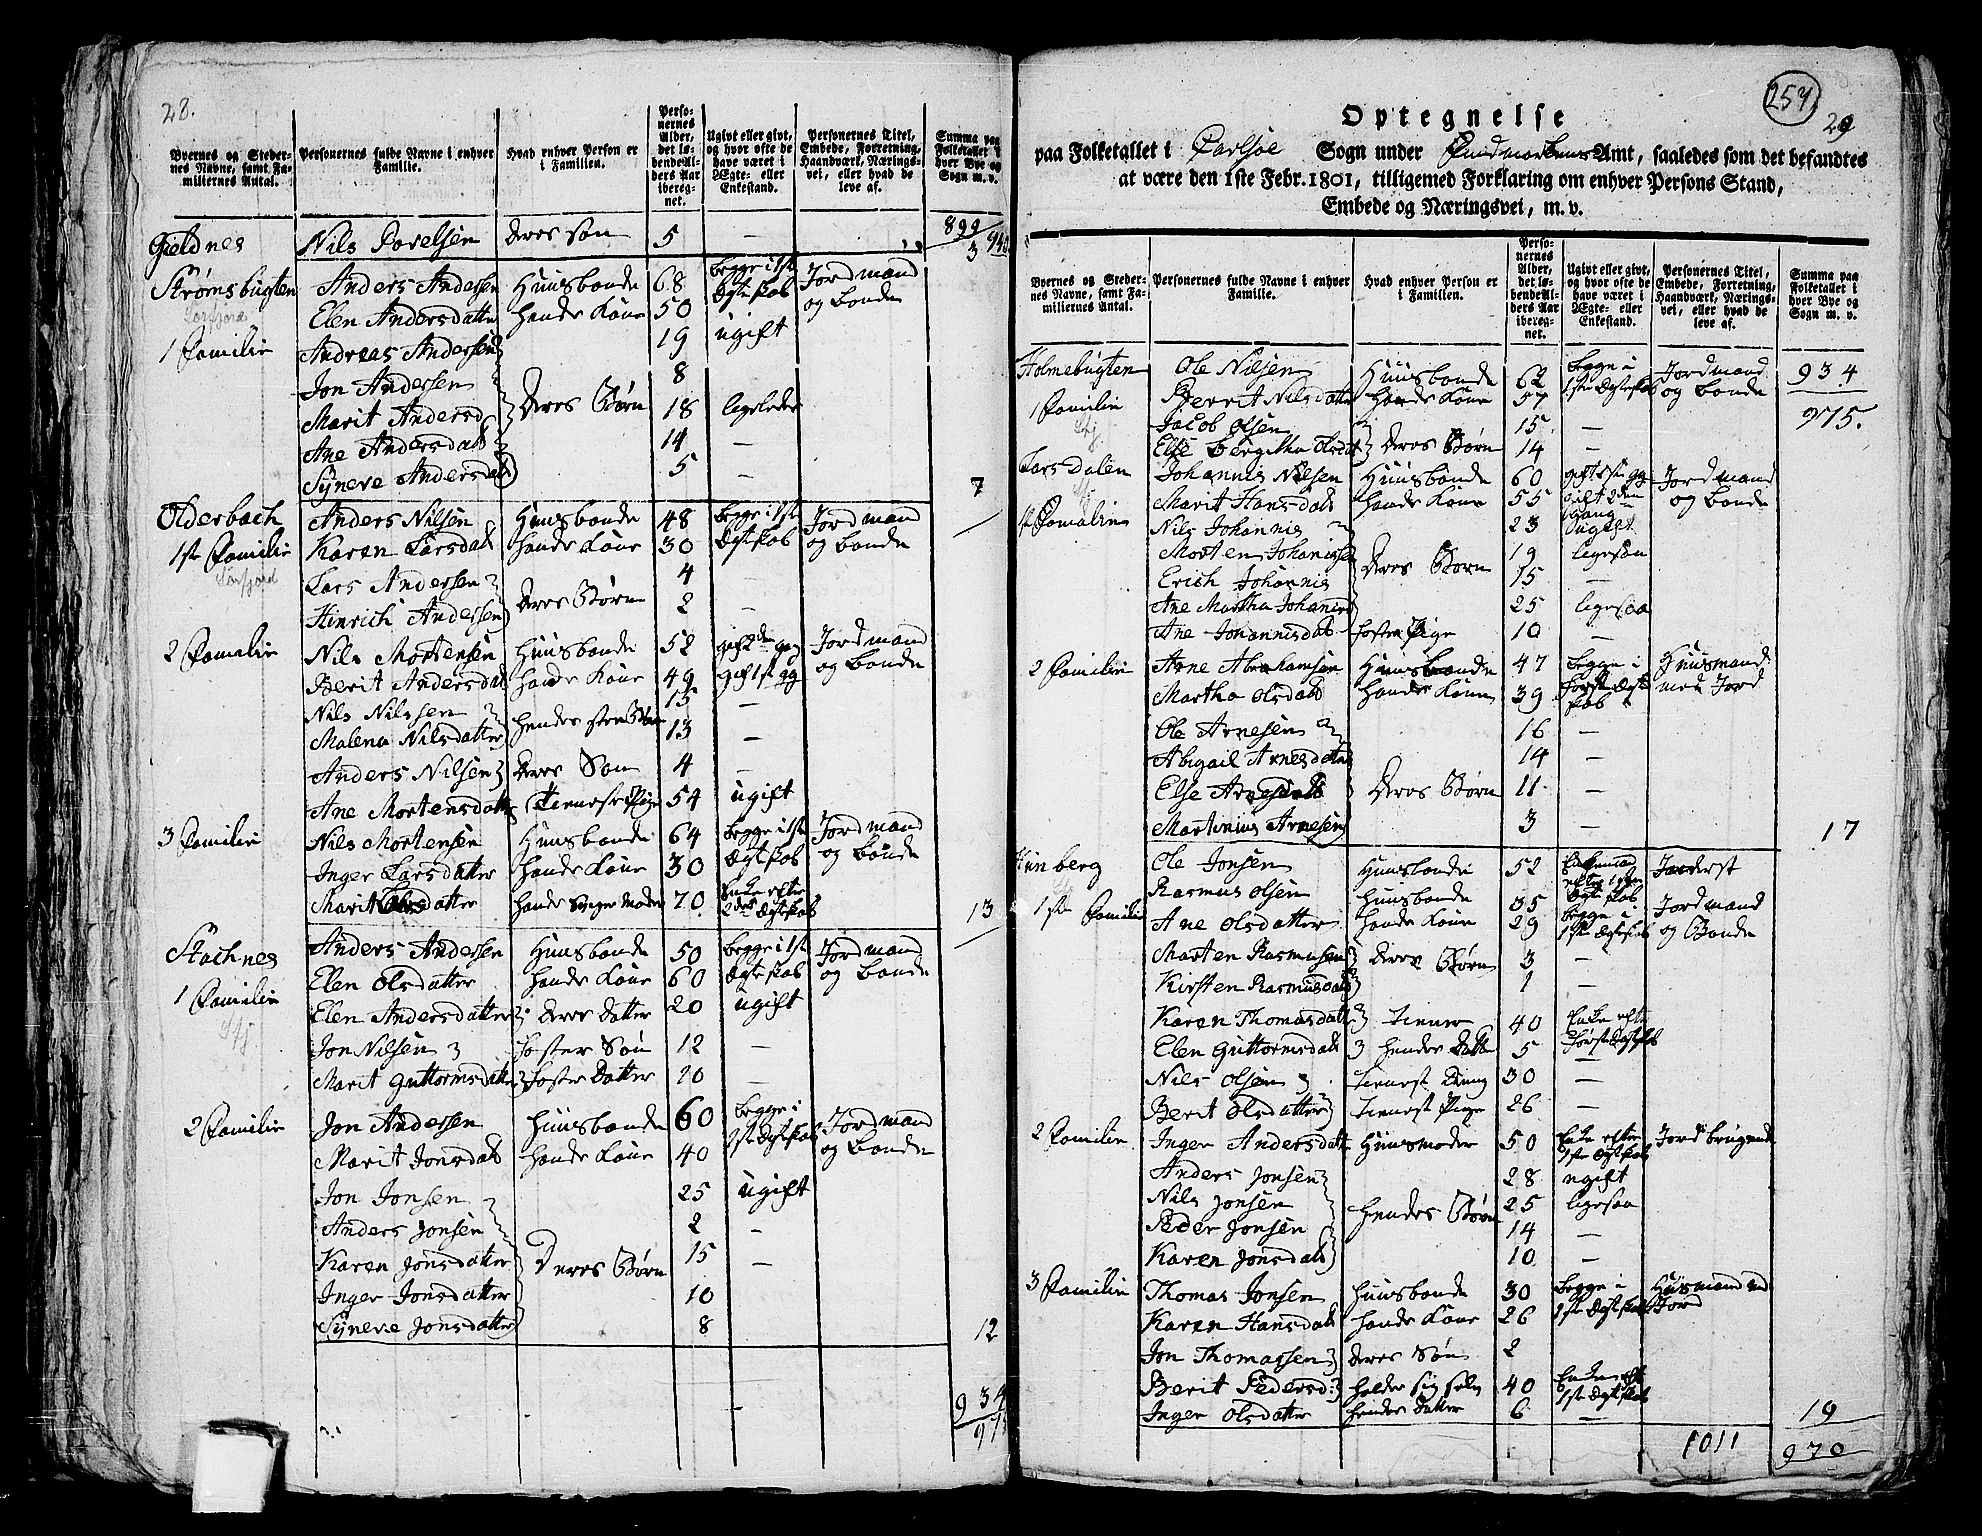 28.
Byernes og Stedernes Navne, samt Familiernes Antal.
Personernes fulde Navne i enhver Familie.
Hvad enhver Person er i Familien.
Personernes Alder, det løbende Alders Aar iberegnet.
Ugivt eller givt, og hvor ofte de have været i Ægte- eller Enkestand.
Personernes Titel, Embede, Forretning, Haandværk, Næringsvei, eller hvad de leve af.
Summa paa Folketallet i hver Bye og Sogn m. v.
899
Nils Povelsen deres søn 5 — 3
Strømsbugten Anders Andersen Huusbonde 68 begge i 1st Jordmand
Elen Andersdatter hands Kone 50 Ægteskab og bonde
1 Familie Andreas Andersen 19 ugift
Jon Andersen 8
Marit Andersd Deres Børn 18 ligeledes
Ane Andersdatt 14 —
Syneve Andersdatt 5 — 7
Olderbach Anders Nilsen Huusbonde 48 begge i 1st Jordmand
1ste Familie Karen Larsdatt hands Kone 30 Ægteskab og bonde
Lars Andersen 4
Hinrich Andersen deres Børn 2 —
2 Familie Nils Mortensen Huusbonde 52 gift 2den gag Jordmand
Berit Andersdatt hands Kone 49 gift 1st gg og bonde
Nils Nilssen 15 —
Malena Nilsdatter 13 —
Anders Nilsen deres Søn 4 —
Ane Mortensdatter Tieneste Pige 54 ugift
3 Familie Nils Mortensen Huusbonde 64 begge i 1st Jordmand
Inger Larsdatter hands Kone 30 Ægteskab og bonde
Marit Olsdatter 70 Enke efter 2det Ægteskab 13
Stachnes Anders Andersen Huusbonde 50 begge i 1st Jordmand
Elen Olsdatter hands Kone 60 Ægteskab og bonde
1 Familie Elen Andersdatter deres Datter 20 ugift
Jon Nilsen foster Søn 12 —
Marit Guttormsdatter foster Datter 10 —
2 Familie Jon Andersen huusbonde 60 begge i Jordmand
Marit Jonsdatt hands Kone 40 1st Ægteskab og bonde
Jon Jonsen 25 ugift
Anders Jonsen 2 —
Karen Jonsdatter Deres Børn 15 —
Inger Jonsdatter 10
Syneve Jonsdatter 8 12
934
257
29
Optegnelse
paa Folketallet i Carlsøe Sogn under Findmarkens Amt, saaledes som det befandtes
at være den 1ste Febr. 1801, tilligemed Forklaring om enhver Persons Stand,
Embede og Næringsvei, m. v.
Byernes og Stedernes Navne, samt Familiernes Antal.
Personernes fulde Navne i enhver Familie.
Hvad enhver Person er i Familien.
Personernes Alder, det løbende Alders Aar iberegnet.
Ugivt eller givt, og hvor ofte de have været i Ægte- eller Enkestand.
Personernes Titel, Embede, Forretning, Haandværk, Næringsvei, eller hvad de leve af.
Summa paa Folketallet i hver Bye og Sogn m. v.
Holmebugten Ole Nilsen Huusbonde 62 begge i Jordmand 934
1 Familie Berrit Nilsdatter hands Kone 57 1ste Ægteskab og bonde 975.
Jacob Olsen 15 —
Else Bergitha Olsdatt deres Børn 14 —
Larsdalen Johannis Nilsen Huusbonde 60 gift 1ste gg Jordmand
Marit Hansdatt hands Kone 55 gift 2den gang og bonde
1 Familie Nils Johannis 23 ugift
Morten Johanissen 19 ligesaa
Erich Johannis Deres Børn 15 —
Ane Martha Johanisd 25 ligesaa
Ane Johannisdatt foster Pige 10 —
2 Familie Arne Abrahamsen Huusbonde 47 begge i Huusmand
Martha Olsdatt hands Kone 39 første Ægteskab med Jord
Ole Arnesen 16 —
Abigail Arnesdatter 14 —
Else Arnesdatt Deres Børn 11 —
Martinius Arnesen 3 — 17
Ole Jonsen Huusbonde 52 Enkemand efter 1ste Ægteskab
Rasmus Olsen huusbonde 35 begge i Jordmand
1ste Familie Ane Olsdatter hands Kone 29 1ste Ægteskab og Bonde
Morten Rasmusen deres Børn 3 —
Kirsten Rasmusdatt 1 —
Karen Thomasdatt 40 Enke efter
Elen Guttormsdatt hendes Datter 5 første Ægteskab
Nils Olsen Tienest Dreng 30 —
Berit Olsdatter Tienest Pige 26 —
2 Familie Inger Andersdatt Huusmoder 50 Enke efter Jordbrugende
Anders Jonsen 28 ugift
Nils Jonsen 25 ligesaa
Peder Jonsen hendes Børn 14 —
Karen Jonsdatt 10 —
3 Familie Thomas Jonsen huusbonde 30 begge i Huusmand med
Karen Hansdatt hands Kone 26 1ste Ægteskab Jord
Jon Thomassen deres Søn 2
Berit Pedersd. holder sig selv 40 Enke eft 1ste Ægteskab
Inger Olsdatter hendes Datter 6 — 19
1011 970